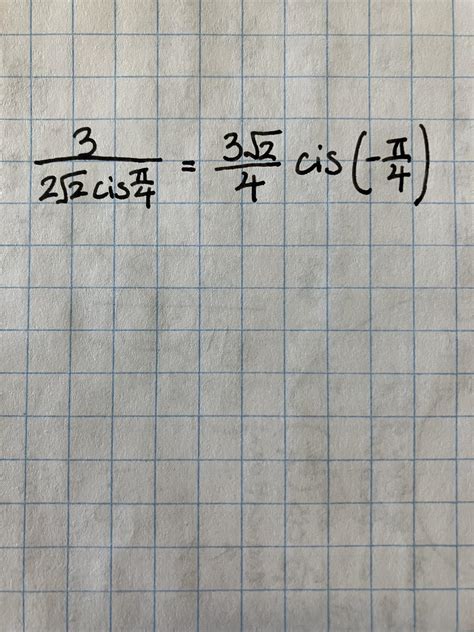 3/(2√2 cis π/4) = 3√2/4 cis (-π/4)